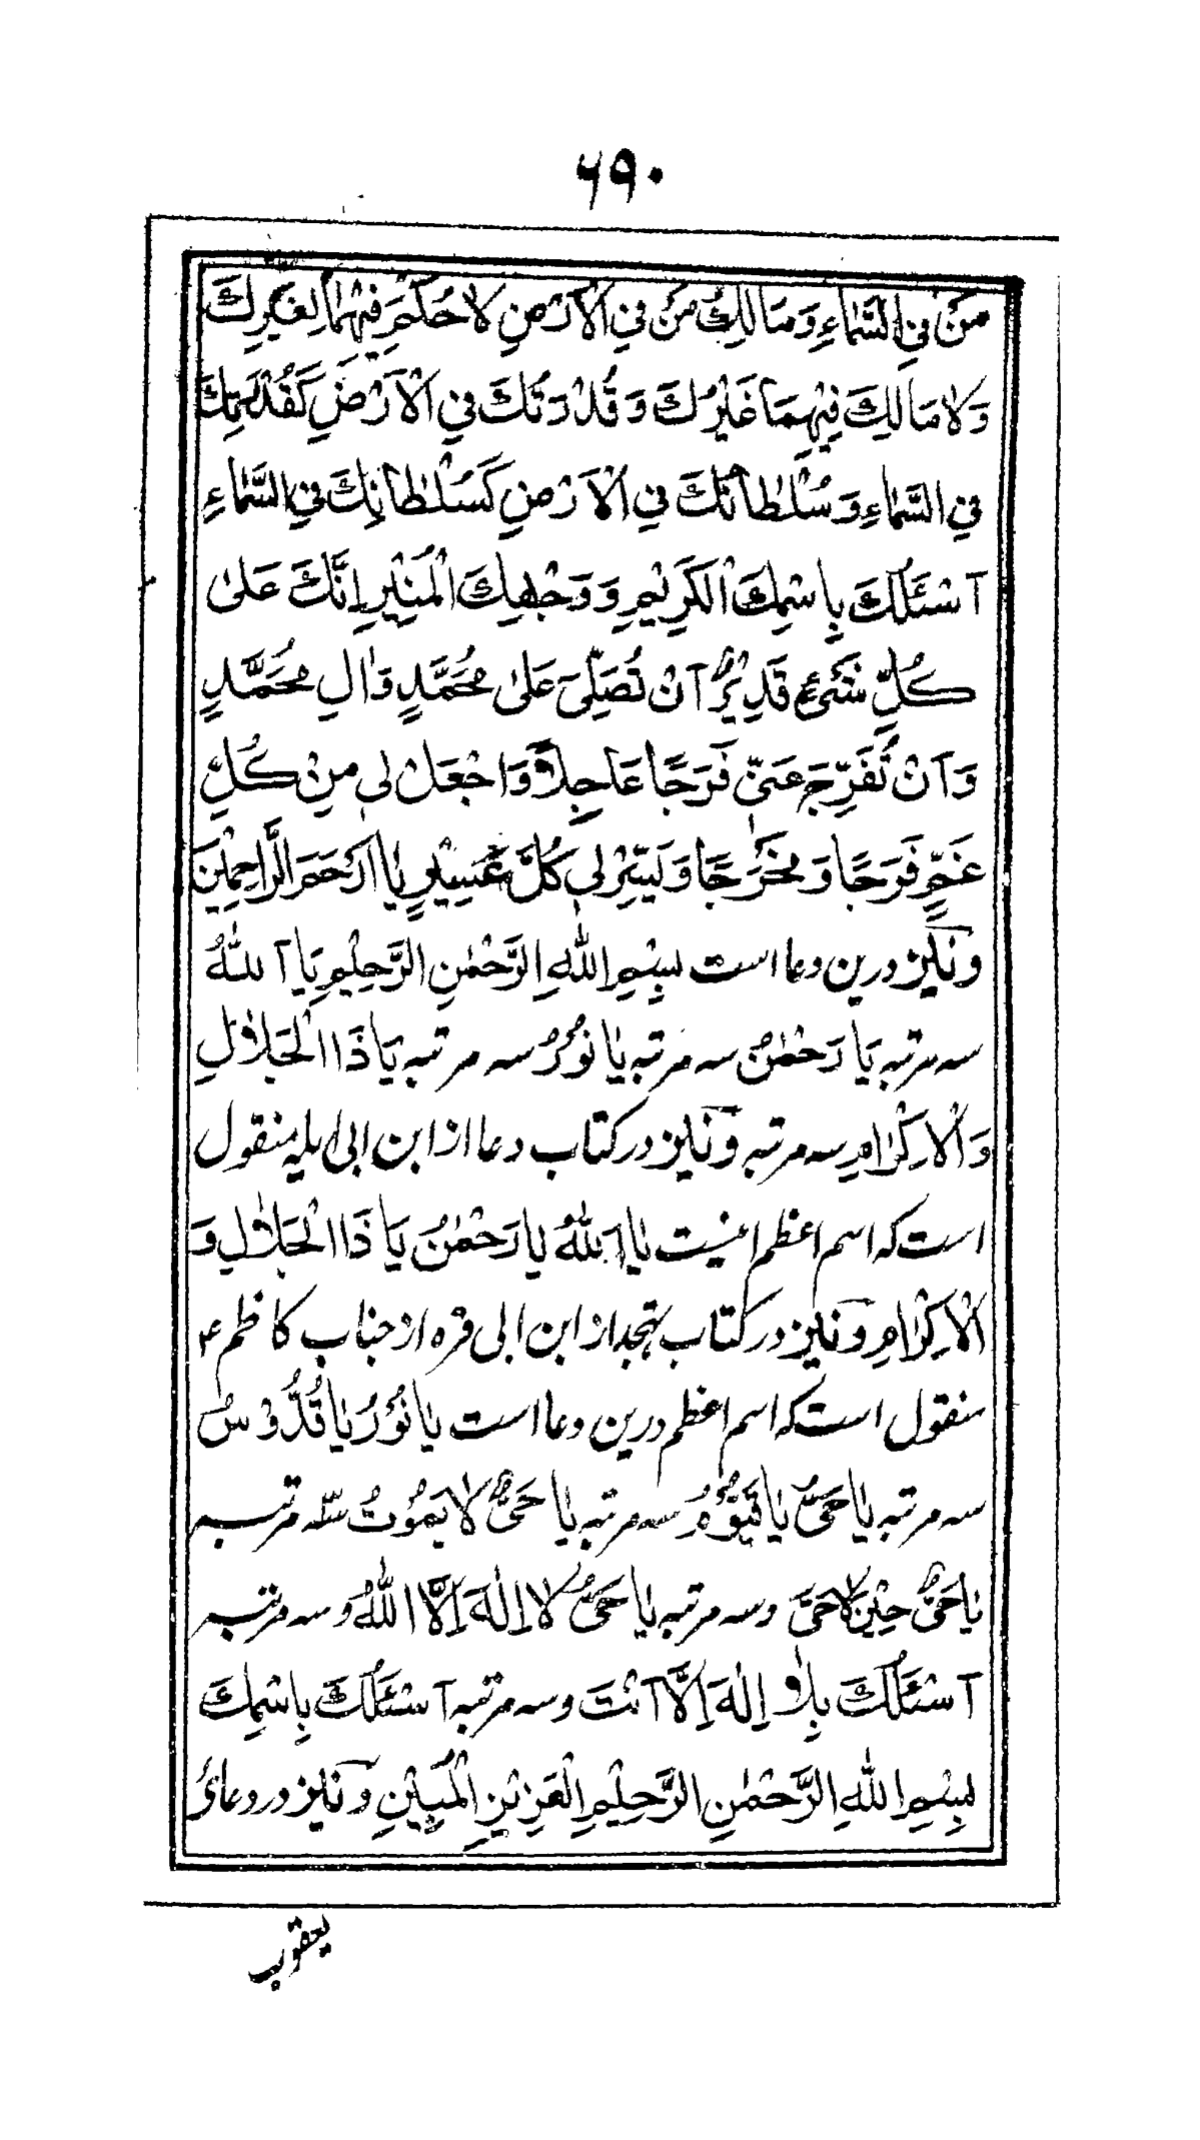 ۶۹۰
مَنْ فِي السَّمَاءِ وَمَالِكُ مَنْ فِي الْاَرْضِ لَا حُكْمَ فِيْهِمَا لِغَيْرِكَ
وَلَا مَالِكَ فِيْهِمَا غَيْرُكَ وَقُدْرَتُكَ فِي الْاَرْضِ كَقُدْرَتِكَ
فِي السَّمَاءِ وَسُلْطَانُكَ فِي الْاَرْضِ كَسُلْطَانِكَ فِي السَّمَاءِ
اَسْئَلُكَ بِاسْمِكَ الْكَرِيْمِ وَ وَجْهِكَ الْمُنِيْرِ اِنَّكَ عَلىٰ
كُلِّ شَيْءٍ قَدِيْرٌ اَنْ تُصَلِّيَ عَلىٰ مُحَمَّدٍ وَاٰلِ مُحَمَّدٍ
وَ اَنْ تُفَرِّجَ عَنِّي فَرَجًا عَاجِلًا وَاجْعَلْ لِي مِنْ كُلِّ
غَمٍّ فَرَجًا وَ مَخْرَجًا وَ يَسِّرْ لِي كُلَّ عَسِيْرٍ يَا اَرْحَمَ الرَّاحِمِيْنَ
و نیز درین دعا است بِسْمِ اللّٰهِ الرَّحْمٰنِ الرَّحِيْمِ يَا اَللّٰهُ
سه مرتبه يَا رَحْمٰنُ سه مرتبه يَا نُوْرُ سه مرتبه يَا ذَا الْجَلَالِ
وَالْاِكْرَامِ سه مرتبه و نیز در کتاب دعا از ابن ابی لیه منقول
است که اسم اعظم اینست يَا اَللّٰهُ يَا رَحْمٰنُ يَا ذَا الْجَلَالِ وَ
الْاِكْرَامِ و نیز در کتاب تهجد از ابن ابی قره از جناب کاظم ع
منقول است که اسم اعظم درین دعا است يَا نُوْرُ يَا قُدُّوْسُ
سه مرتبه يَا حَيُّ يَا قَيُّوْمُ سه مرتبه يَا حَيُّ لَا يَمُوْتُ سه مرتبه
يَا حَيُّ حِيْنَ لَا حَيَّ و سه مرتبه يَا حَيُّ لَا اِلٰهَ اِلَّا اللّٰهُ و سه مرتبه
اَسْئَلُكَ بِلَا اِلٰهَ اِلَّا اَنْتَ و سه مرتبه اَسْئَلُكَ بِاسْمِكَ
بِسْمِ اللّٰهِ الرَّحْمٰنِ الرَّحِيْمِ الْعَزِيْزِ الْمُبِيْنِ و نیز در دعای
یعقوب